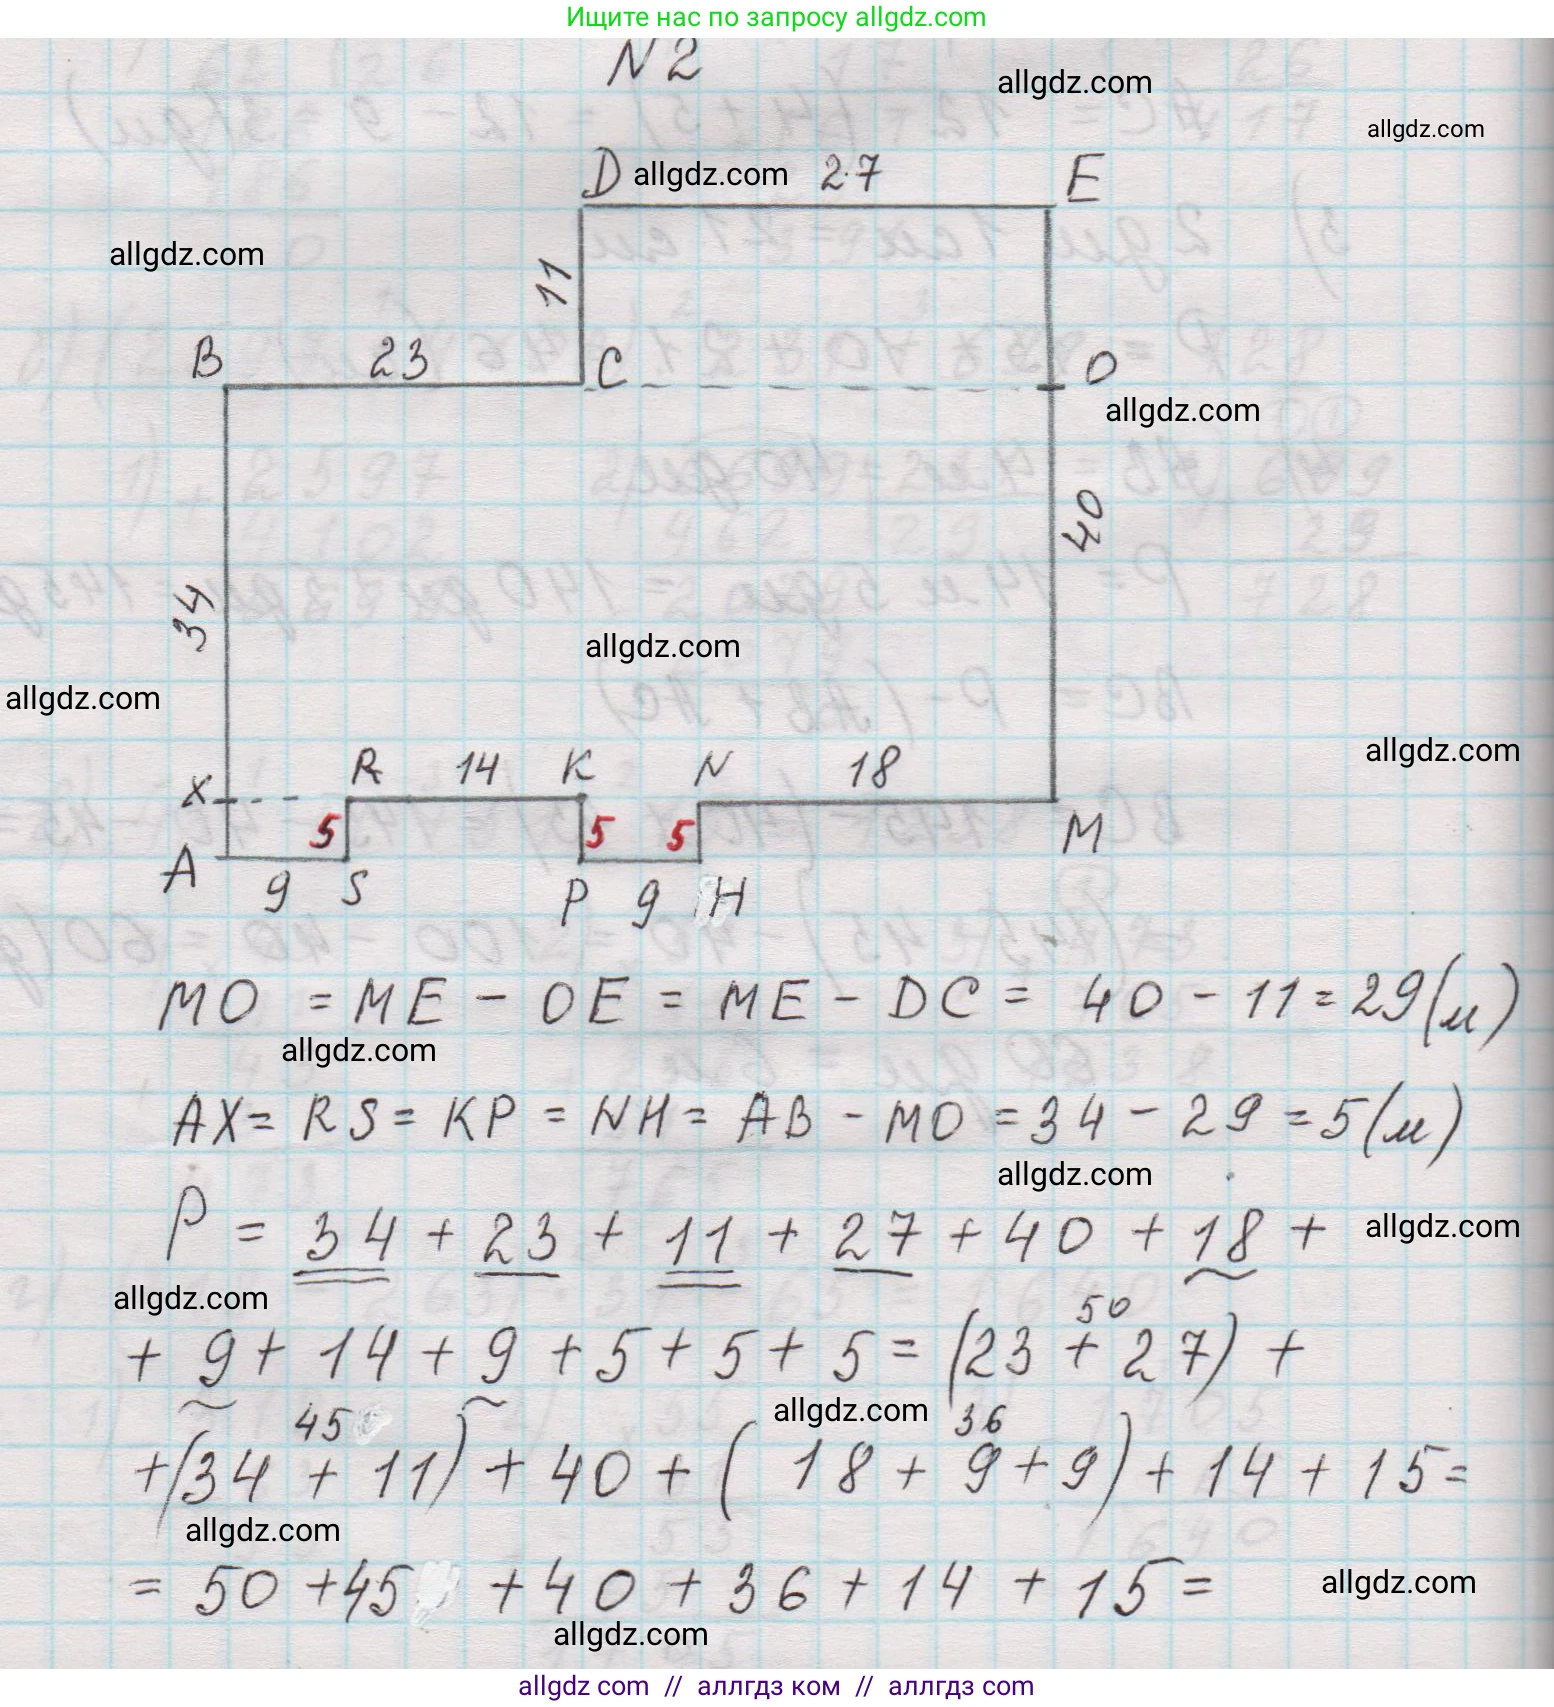 Ищите нас по запросу allgdz.com
N 2
allgdz.com
allgdz.com
D allgdz.com 27 E
allgdz.com
11
B 23 C O
allgdz.com
40
34
allgdz.com
allgdz.com
allgdz.com
X R 14 K N 18
5 5 5 M
A 9 S P 9 H
MO = ME - OE = ME - DC = 40 - 11 = 29 (м)
allgdz.com
AX = RS = KP = NH = AB - MO = 34 - 29 = 5 (м)
allgdz.com
P = 34 + 23 + 11 + 27 + 40 + 18 +
allgdz.com
allgdz.com
50
+ 9 + 14 + 9 + 5 + 5 + 5 = (23 + 27) +
allgdz.com
45 36
+ (34 + 11) + 40 + (18 + 9 + 9) + 14 + 15 =
allgdz.com
= 50 + 45 + 40 + 36 + 14 + 15 =
allgdz.com
allgdz.com
allgdz com // аллгдз ком // аллгдз com